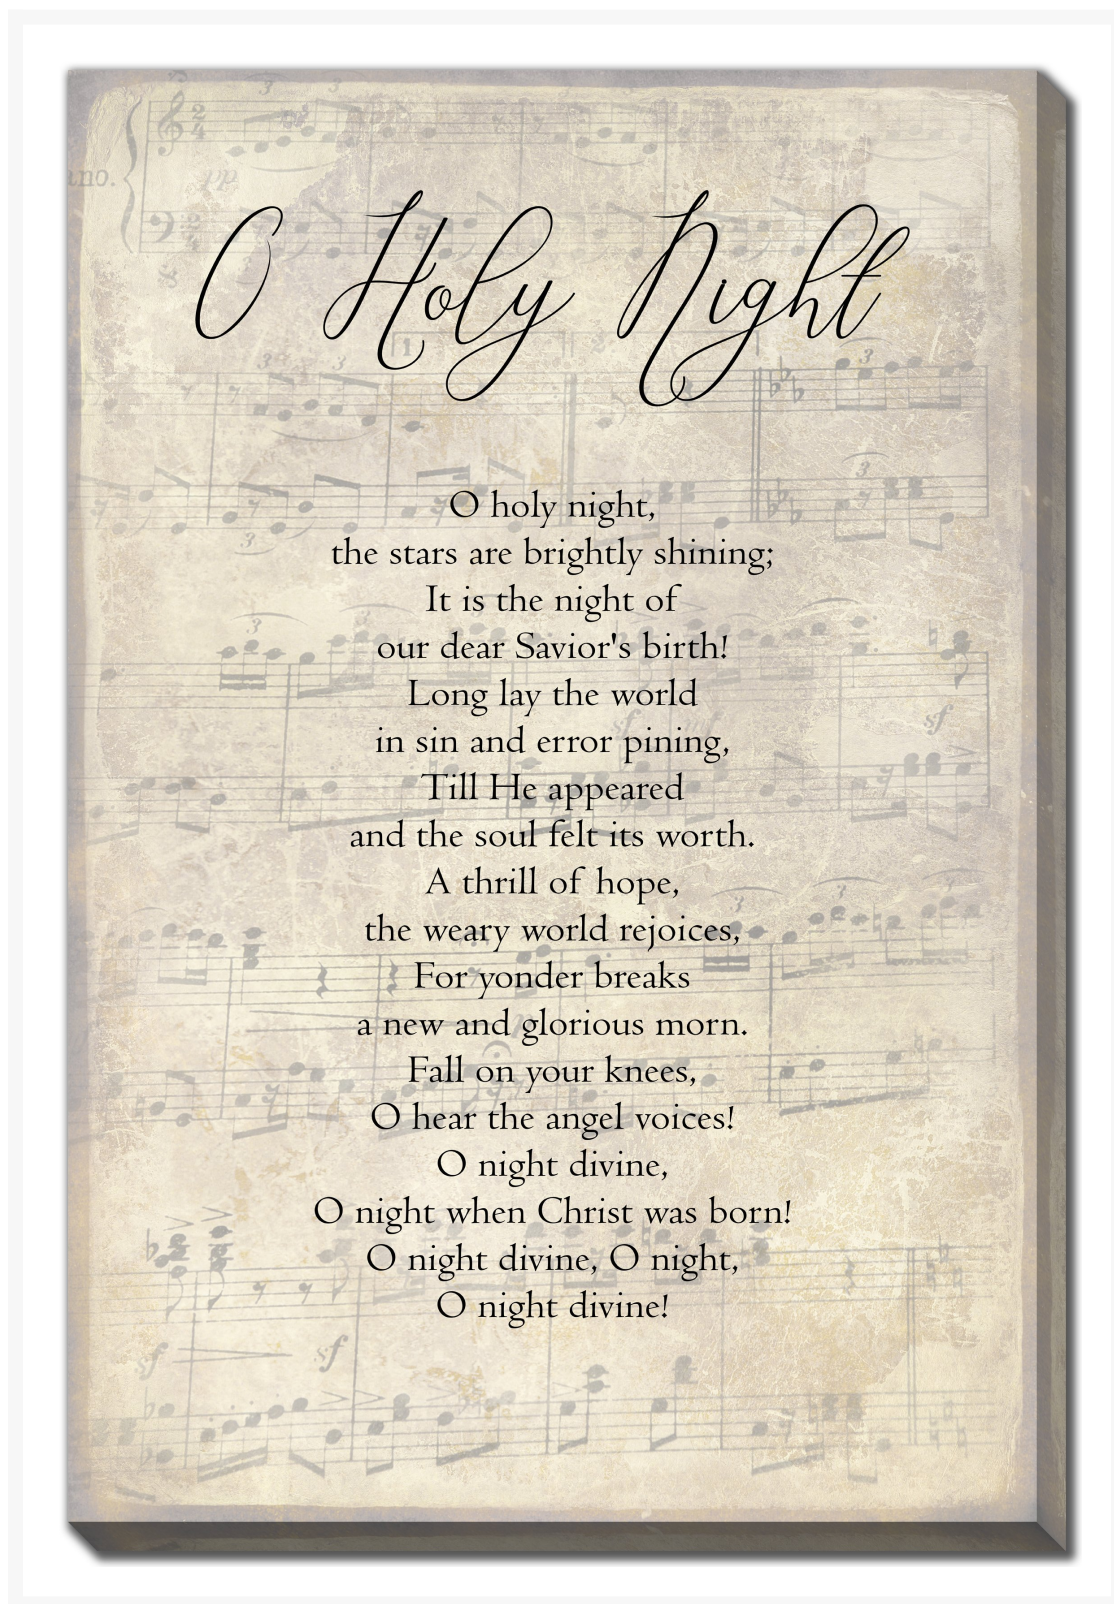 ano.
pp
O Holy Night
O holy night,
the stars are brightly shining;
It is the night of
our dear Savior's birth!
Long lay the world
in sin and error pining,
Till He appeared
and the soul felt its worth.
A thrill of hope,
the weary world rejoices,
For yonder breaks
a new and glorious morn.
Fall on your knees,
O hear the angel voices!
O night divine,
O night when Christ was born!
O night divine, O night,
O night divine!
sf
sf